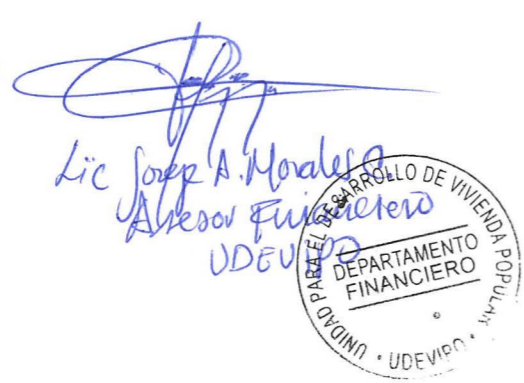 Lic Jorge A. Morales O.
Asesor Financiero
UDEVIPO
UNIDAD PARA EL DESARROLLO DE VIVIENDA POPULAR
DEPARTAMENTO
FINANCIERO
• UDEVIPO •